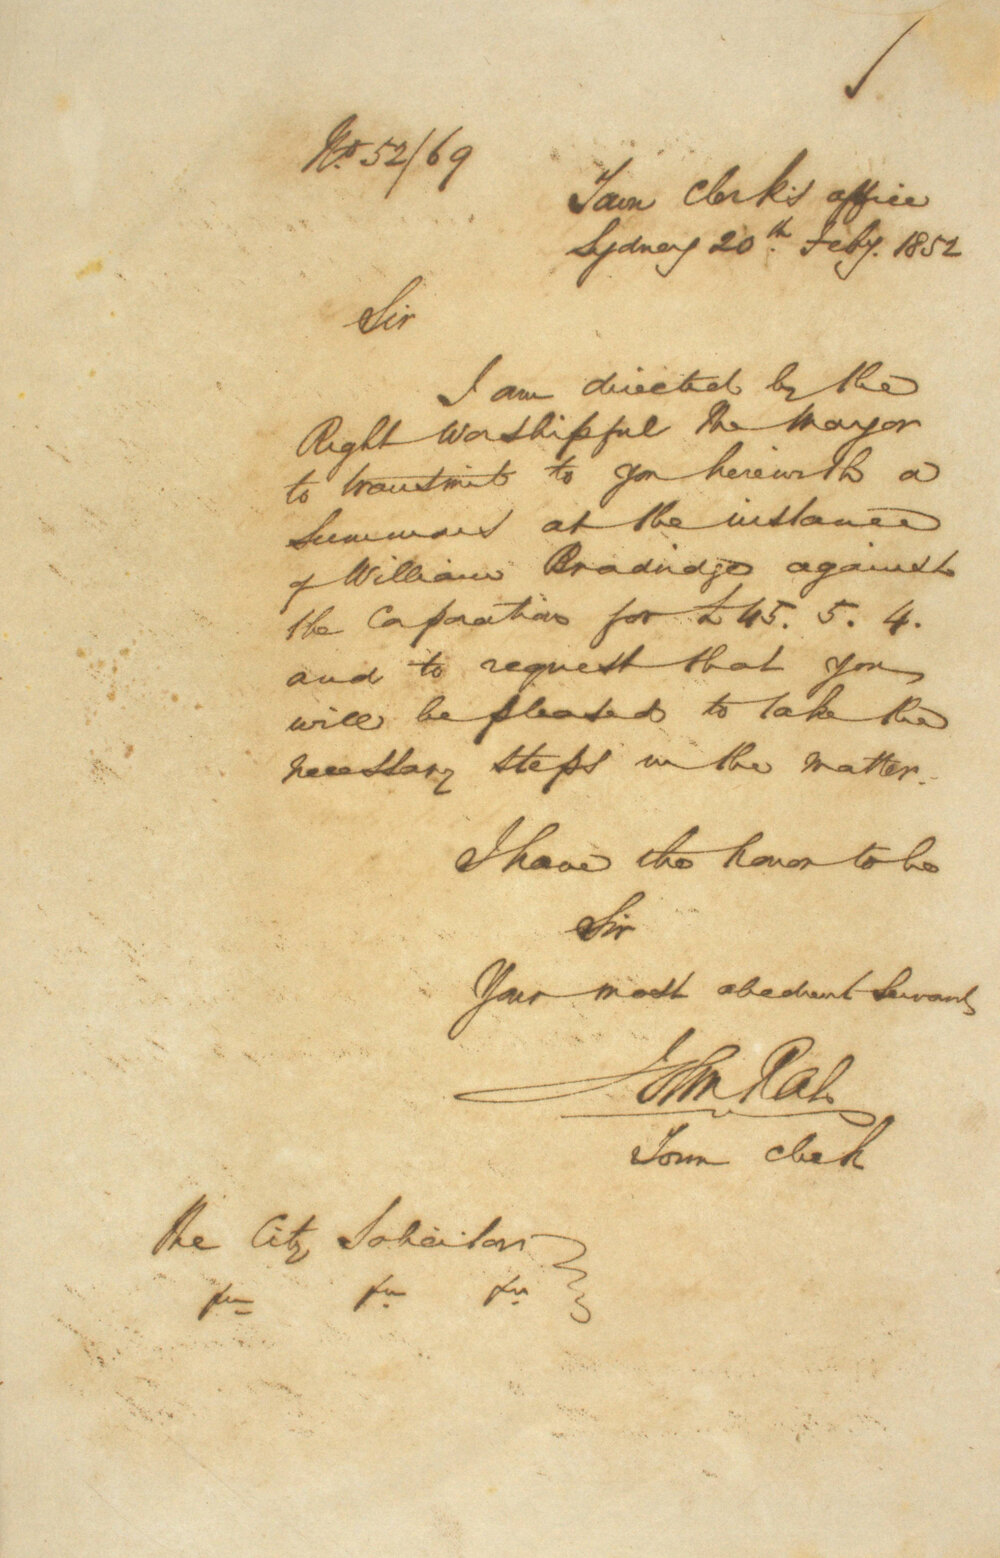 No. 52/69
Town Clerk's office
Sydney 20th. Feby. 1852
Sir
I am directed by the
Right Worshipful The Mayor
to transmit to you herewith a
Summons at the instance
of William Bradridge against
the Corporation for £45. 5. 4.
and to request that you
will be pleased to take the
necessary steps in the matter.
I have the honor to be
Sir
Your most obedient Servant
John Rae
Town Clerk
The City Solicitor